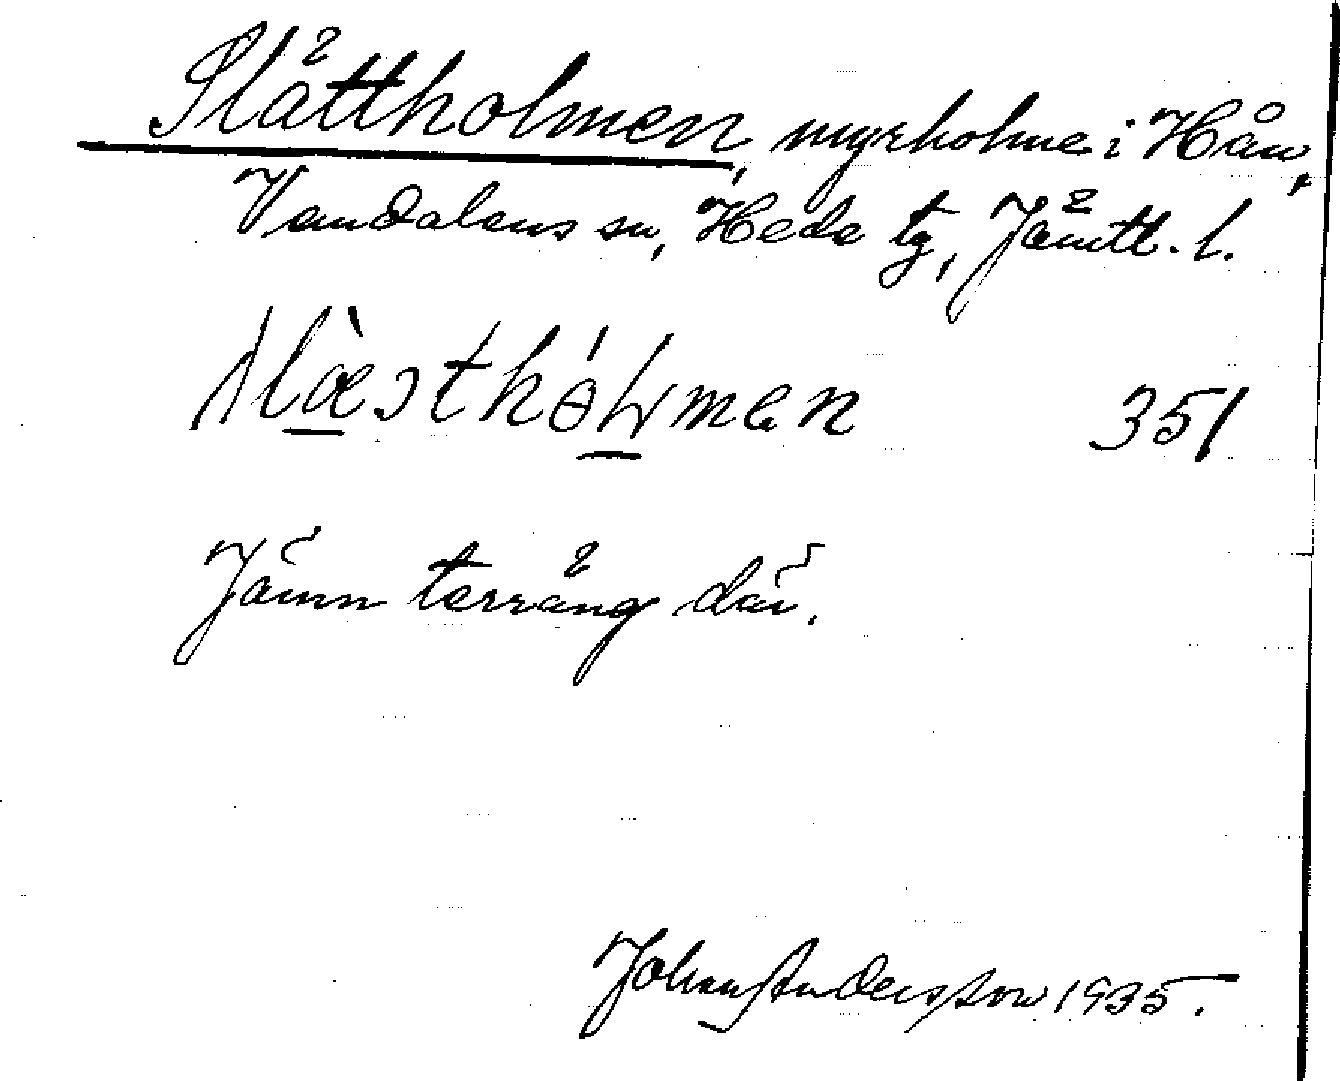 Slättholmen, myrholme i Hån,
Vemdalens sn, Hede tg, Jämtl. l.
351
Jämn terräng där.
Johan Andersson 1935.